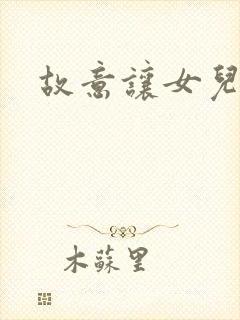 故意讓女兒
木蘇里